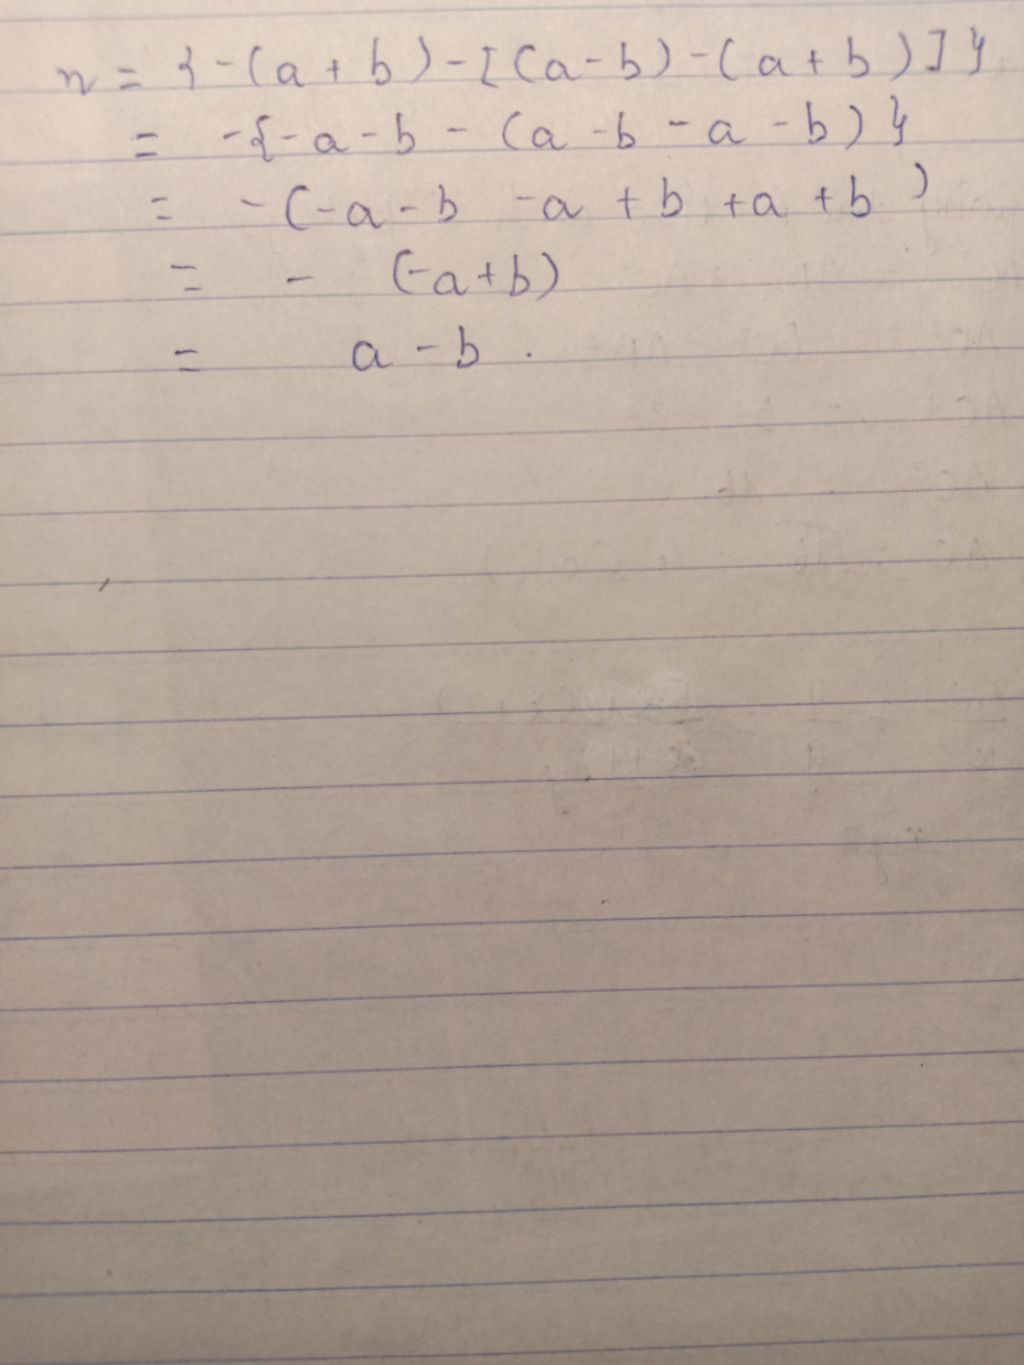 n = {-(a+b)-[(a-b)-(a+b)]}
= -{-a-b-(a-b-a-b)}
= -(-a-b-a+b+a+b)
= -(-a+b)
= a-b.